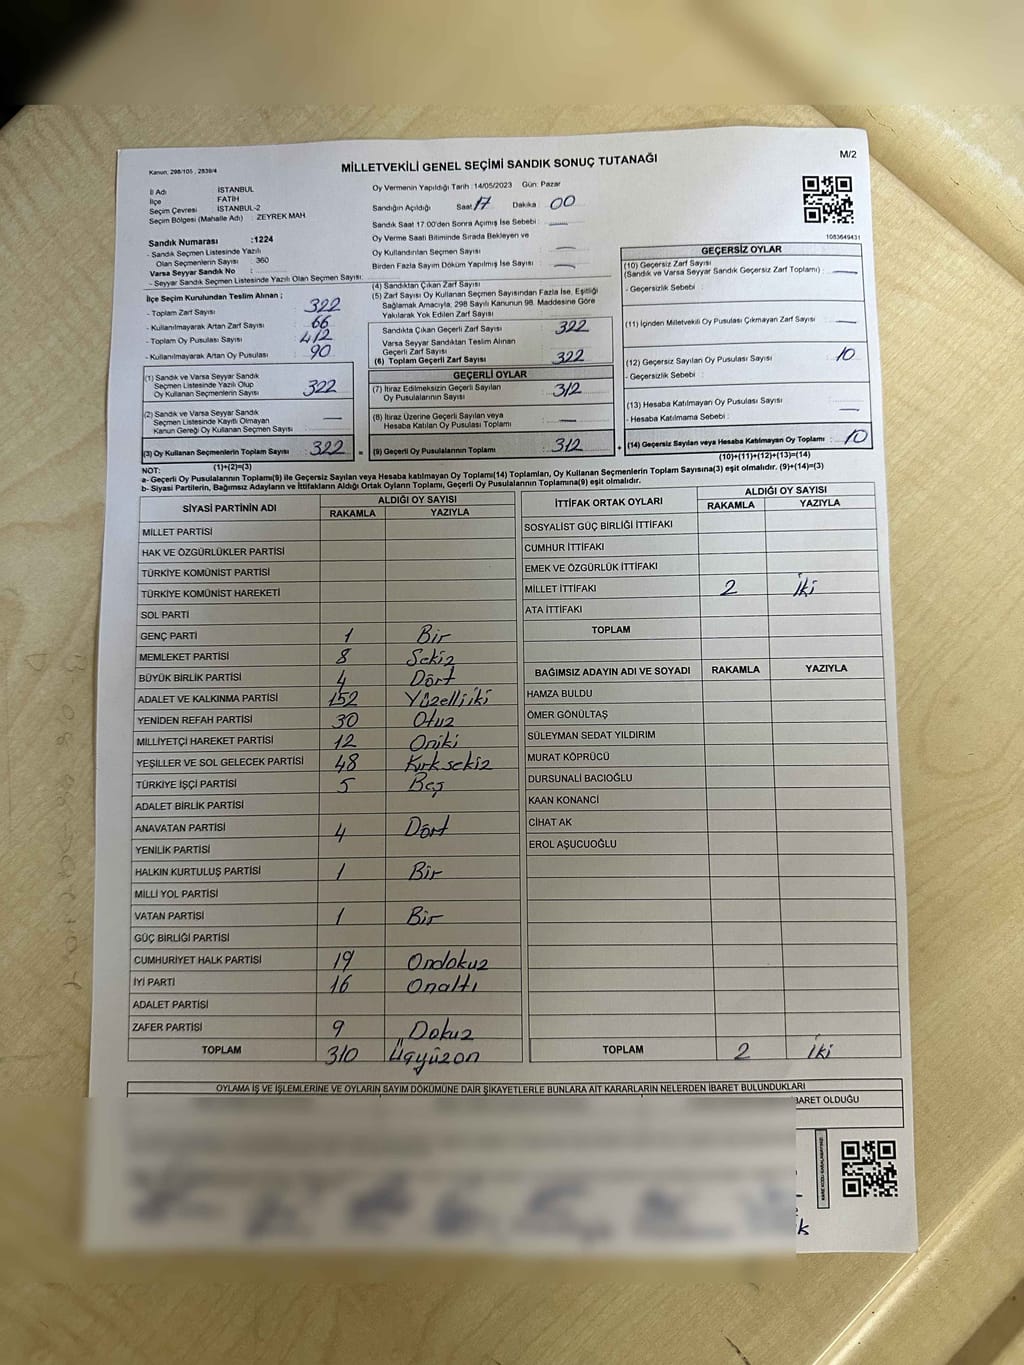 M/2
Kanun, 298/105 , 2839/4
MİLLETVEKİLİ GENEL SEÇİMİ SANDIK SONUÇ TUTANAĞI
İl Adı İSTANBUL
İlçe FATİH
Seçim Çevresi İSTANBUL-2
Seçim Bölgesi (Mahalle Adı) : ZEYREK MAH.
Sandık Numarası :1224
- Sandık Seçmen Listesinde Yazılı
Olan Seçmenlerin Sayısı : 360
Varsa Seyyar Sandık No :
- Seyyar Sandık Seçmen Listesinde Yazılı Olan Seçmen Sayısı:
Oy Vermenin Yapıldığı Tarih :14/05/2023 Gün: Pazar
Sandığın Açıldığı Saat 17 Dakika 00
Sandık Saat 17.00'den Sonra Açılmış İse Sebebi : —
Oy Verme Saati Bitiminde Sırada Bekleyen ve
Oy Kullandırılan Seçmen Sayısı : —
Birden Fazla Sayım Döküm Yapılmış İse Sayısı : —
1083649431
İlçe Seçim Kurulundan Teslim Alınan ;
- Toplam Zarf Sayısı : 322
- Kullanılmayarak Artan Zarf Sayısı : 66
- Toplam Oy Pusulası Sayısı : 412
- Kullanılmayarak Artan Oy Pusulası : 90
(1) Sandık ve Varsa Seyyar Sandık
Seçmen Listesinde Yazılı Olup
Oy Kullanan Seçmenlerin Sayısı : 322
(2) Sandık ve Varsa Seyyar Sandık
Seçmen Listesinde Kayıtlı Olmayan
Kanun Gereği Oy Kullanan Seçmen Sayısı : —
(3) Oy Kullanan Seçmenlerin Toplam Sayısı : 322
(1)+(2)=(3)
(4) Sandıktan Çıkan Zarf Sayısı
(5) Zarf Sayısı Oy Kullanan Seçmen Sayısından Fazla İse, Eşitliği
Sağlamak Amacıyla, 298 Sayılı Kanunun 98. Maddesine Göre
Yakılarak Yok Edilen Zarf Sayısı :
Sandıkta Çıkan Geçerli Zarf Sayısı : 322
Varsa Seyyar Sandıktan Teslim Alınan
Geçerli Zarf Sayısı
(6) Toplam Geçerli Zarf Sayısı : 322
GEÇERLİ OYLAR
(7) İtiraz Edilmeksizin Geçerli Sayılan
Oy Pusulalarının Sayısı : 312
(8) İtiraz Üzerine Geçerli Sayılan veya
Hesaba Katılan Oy Pusulası Toplamı : —
= (9) Geçerli Oy Pusulalarının Toplamı : 312
GEÇERSİZ OYLAR
(10) Geçersiz Zarf Sayısı
(Sandık ve Varsa Seyyar Sandık Geçersiz Zarf Toplamı) : —
- Geçersizlik Sebebi :
(11) İçinden Milletvekili Oy Pusulası Çıkmayan Zarf Sayısı : —
(12) Geçersiz Sayılan Oy Pusulası Sayısı : 10
- Geçersizlik Sebebi :
(13) Hesaba Katılmayan Oy Pusulası Sayısı : —
- Hesaba Katılmama Sebebi :
+ (14) Geçersiz Sayılan veya Hesaba Katılmayan Oy Toplamı : 10
(10)+(11)+(12)+(13)=(14)
NOT:
a- Geçerli Oy Pusulalarının Toplamı(9) ile Geçersiz Sayılan veya Hesaba katılmayan Oy Toplamı(14) Toplamları, Oy Kullanan Seçmenlerin Toplam Sayısına(3) eşit olmalıdır. (9)+(14)=(3)
b- Siyasi Partilerin, Bağımsız Adayların ve İttifakların Aldığı Ortak Oyların Toplamı, Geçerli Oy Pusulalarının Toplamına(9) eşit olmalıdır.
SİYASİ PARTİNİN ADI ALDIĞI OY SAYISI
RAKAMLA YAZIYLA
MİLLET PARTİSİ
HAK VE ÖZGÜRLÜKLER PARTİSİ
TÜRKİYE KOMÜNİST PARTİSİ
TÜRKİYE KOMÜNİST HAREKETİ
SOL PARTİ
GENÇ PARTİ 1 Bir
MEMLEKET PARTİSİ 8 Sekiz
BÜYÜK BİRLİK PARTİSİ 4 Dört
ADALET VE KALKINMA PARTİSİ 152 Yüzelliiki
YENİDEN REFAH PARTİSİ 30 Otuz
MİLLİYETÇİ HAREKET PARTİSİ 12 Oniki
YEŞİLLER VE SOL GELECEK PARTİSİ 48 Kırksekiz
TÜRKİYE İŞÇİ PARTİSİ 5 Beş
ADALET BİRLİK PARTİSİ
ANAVATAN PARTİSİ 4 Dört
YENİLİK PARTİSİ
HALKIN KURTULUŞ PARTİSİ 1 Bir
MİLLİ YOL PARTİSİ
VATAN PARTİSİ 1 Bir
GÜÇ BİRLİĞİ PARTİSİ
CUMHURİYET HALK PARTİSİ 19 Ondokuz
İYİ PARTİ 16 Onaltı
ADALET PARTİSİ
ZAFER PARTİSİ 9 Dokuz
TOPLAM 310 Üçyüzon
İTTİFAK ORTAK OYLARI ALDIĞI OY SAYISI
RAKAMLA YAZIYLA
SOSYALİST GÜÇ BİRLİĞİ İTTİFAKI
CUMHUR İTTİFAKI
EMEK VE ÖZGÜRLÜK İTTİFAKI
MİLLET İTTİFAKI 2 İki
ATA İTTİFAKI
TOPLAM
BAĞIMSIZ ADAYIN ADI VE SOYADI RAKAMLA YAZIYLA
HAMZA BULDU
ÖMER GÖNÜLTAŞ
SÜLEYMAN SEDAT YILDIRIM
MURAT KÖPRÜCÜ
DURSUNALİ BACIOĞLU
KAAN KONANCİ
CİHAT AK
EROL AŞUCUOĞLU
TOPLAM 2 İki
OYLAMA İŞ VE İŞLEMLERİNE VE OYLARIN SAYIM DÖKÜMÜNE DAİR ŞİKAYETLERLE BUNLARA AİT KARARLARIN NELERDEN İBARET BULUNDUKLARI
BARET OLDUĞU